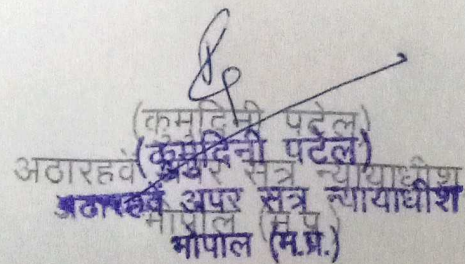 (कुमुदिनी पटेल)
(कुमुदिनी पटेल)
अठारहवें अपर सत्र न्यायाधीश
अठारहवें अपर सत्र न्यायाधीश
भोपाल (म.प्र.)
भोपाल (म.प्र.)